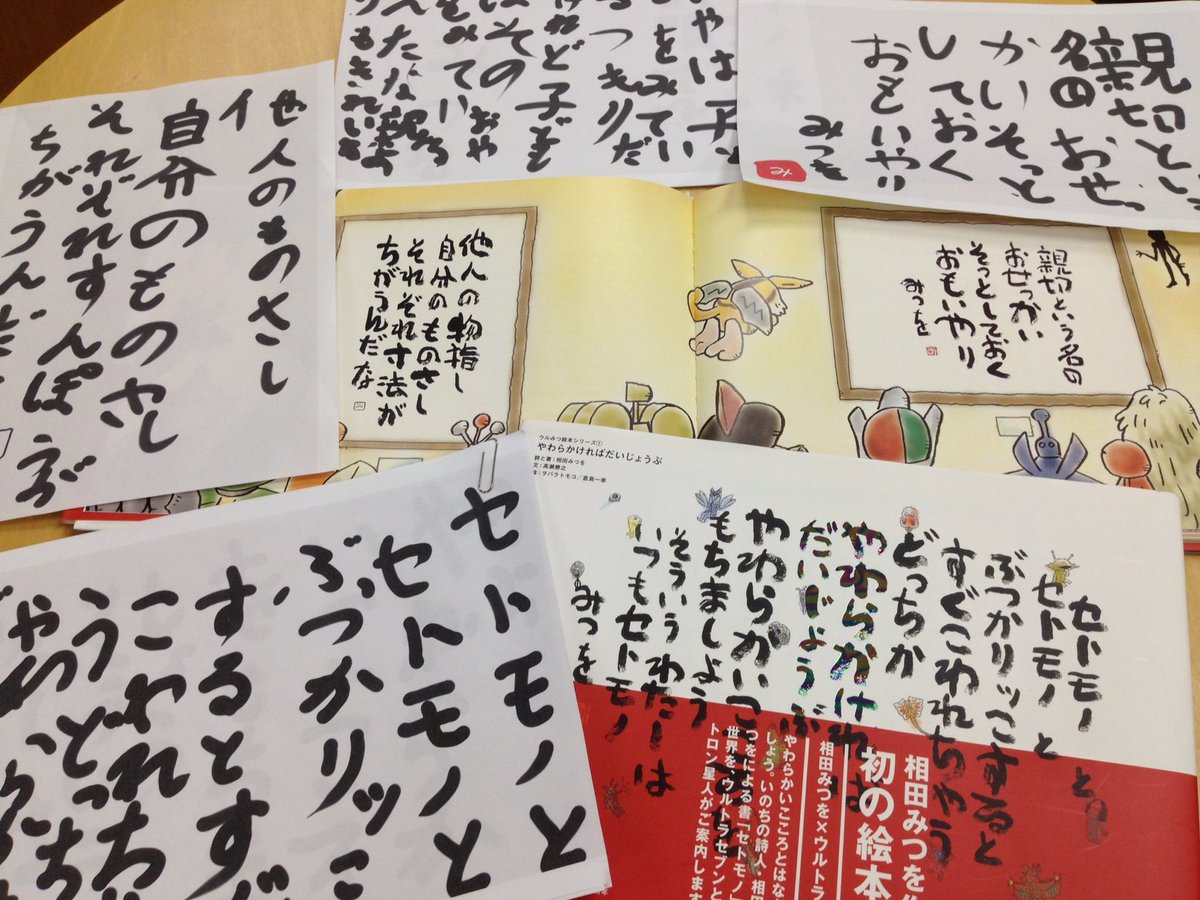 親切とい
名のおせっ
かいそっと
しておく
おもいやり
みつを
やは子
をみてい
つきりだ
れど子ぞ
はその おや
をみてい
他人のものさし
イ
自分のものさし
それぞれすんぽ
ちがうんだ
親切という名の
おせっかい
そっとしておく
おもいやり
みつを
他人の物指し
自分のものさし
それぞれ寸法が
ちがうんだな
セトモノと
セトモノと
ぶつかりッこ
するとすぐ
こわれち
うどっち
ウルみつ絵本シリーズ①
やわらかければだいじょうぶ
詩と書:相田みつを
文:髙瀬勝之
絵:ヲバラトモコ/倉島一幸
セトモノと
セトモノと
ぶつかりッこすると
すぐこわれちゃう
どっちか
やわらかければ
だいじょうぶ
やわらかいこころを
もちましょう
そういうわたしは
いつもセトモノ
みつを
相田みつを
初の絵本
相田みつを×ウルトラ
やわらかいこころとはな
しょう。いのちの詩人・相田
つをによる書「セトモノ」
世界を、ウルトラセブンと
トロン星人がご案内します